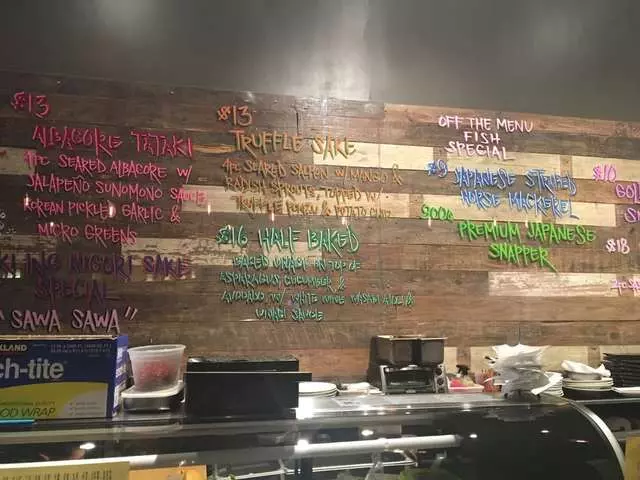 $13
ALBACORE TATAKI
4PC SEARED ALBACORE W/
JALAPEÑO SUNOMONO SAUCE
KOREAN PICKLED GARLIC &
MICRO GREENS
NIGORI SAKE
SPECIAL
"SAWA SAWA"
$13
TRUFFLE SAKE
4PC SEARED SALMON W/ MANGO &
RADISH SPROUTS, TOPPED W/
TRUFFLE & POTATO
$16 HALF BAKED
BAKED UNAGI ON TOP OF
ASPARAGUS, CUCUMBER, &
AVOCADO W/ WHITE WINE WASABI AIOLI &
UNAGI SAUCE
OFF THE MENU
FISH
SPECIAL
$9 JAPANESE STRIPED
HORSE MACKEREL
PREMIUM JAPANESE
SNAPPER
$10
$18
KLAND
ch-tite
OOD WRAP